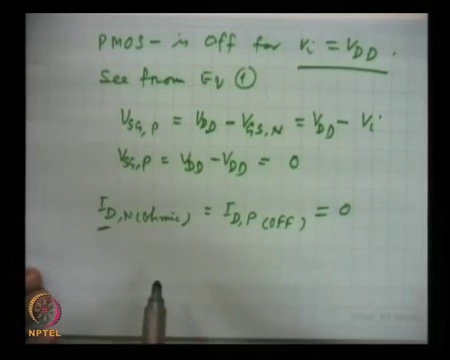 PMOS- is Off for Vi = VDD.
See from EV ①
VSG,P = VDD - VGS,N = VDD - Vi
VSG,P = VDD - VDD = 0
ID,N(ohmic) = ID,P(OFF) = 0
NPTEL